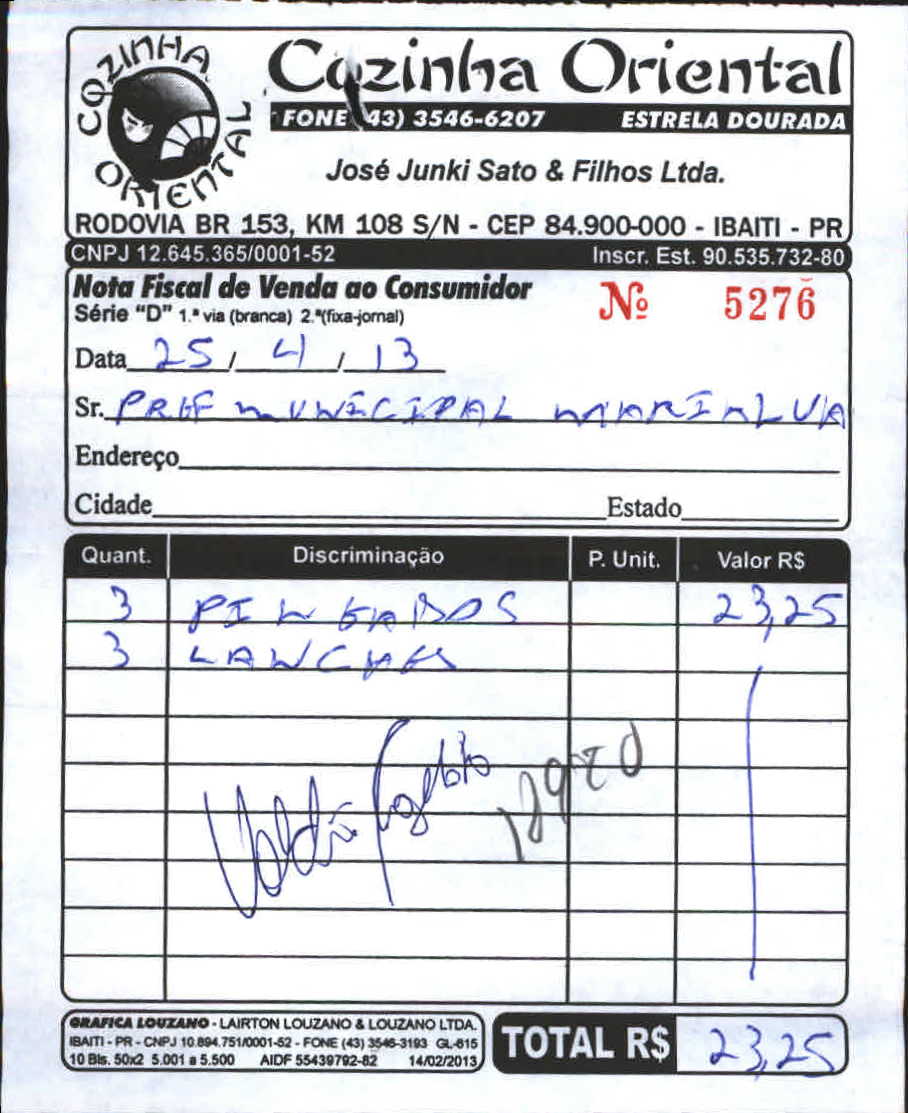 COZINHA ORIENTAL
Cozinha Oriental
FONE (43) 3546-6207 ESTRELA DOURADA
José Junki Sato & Filhos Ltda.
RODOVIA BR 153, KM 108 S/N - CEP 84.900-000 - IBAITI - PR
CNPJ 12.645.365/0001-52 Inscr. Est. 90.535.732-80
Nota Fiscal de Venda ao Consumidor
Série "D" 1.ª via (branca) 2.ª(fixa-jornal)
Nº 5276
Data 25 / 4 / 13
Sr. PREF MUNICIPAL MARIALVA
Endereço
Cidade Estado
Quant. Discriminação P. Unit. Valor R$
3 23,25
3 LANCHES
GRAFICA LOUZANO - LAIRTON LOUZANO & LOUZANO LTDA.
IBAITI - PR - CNPJ 10.894.751/0001-52 - FONE (43) 3546-3193 GL-615
10 Bls. 50x2 5.001 a 5.500 AIDF 55439792-82 14/02/2013
TOTAL R$ 23,25